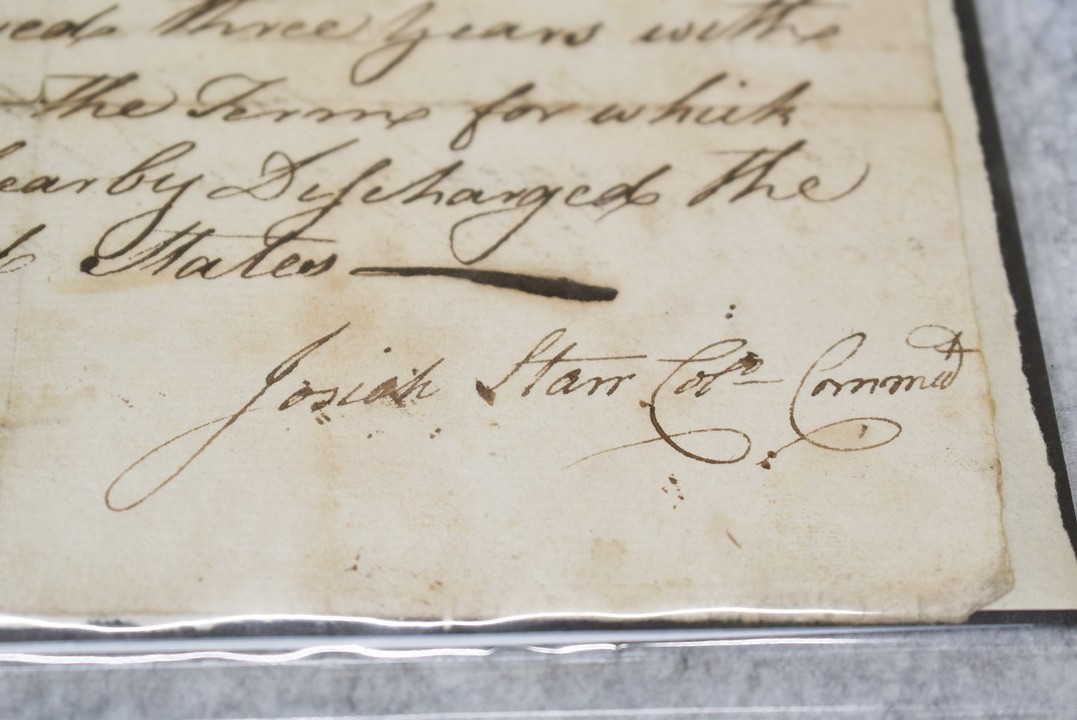 three Years with
the Term for which
hearby Discharged the
States
Josiah Starr Col.º Commd